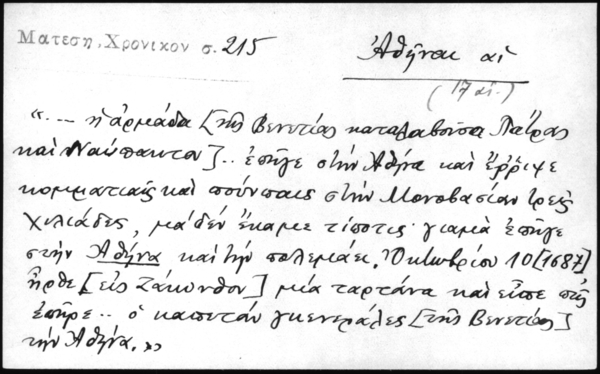 Ματεση, Χρονικον σ. 215
Ἀθῆναι αἱ
(17 αἰ.)
«... ἡ ἁρμάδα [τῆς Βενετίας καταλαβοῦσα Πάτρας
καὶ Ναύπακτον].. ἐπῆγε στὴν Ἀθήνα καὶ ἔρριψε
κομματιαῖς καὶ πούνπαις στὴν Μονοβασίαν τρεῖς
χιλιάδες, μὰ δὲν ἔκαμε τίποτις· γιαμὰ ἐπῆγε
στὴν Ἀθήνα καὶ τὴν πολεμάει. Ὀκτωβρίου 10 [1687]
ἦρθε [εἰς Ζάκυνθον] μία ταρτάνα καὶ εἶπε πῶς
ἐπῆρε.. ὁ καπετὰν γκενεράλες [τῆς Βενετίας]
τὴν Ἀθήνα.»